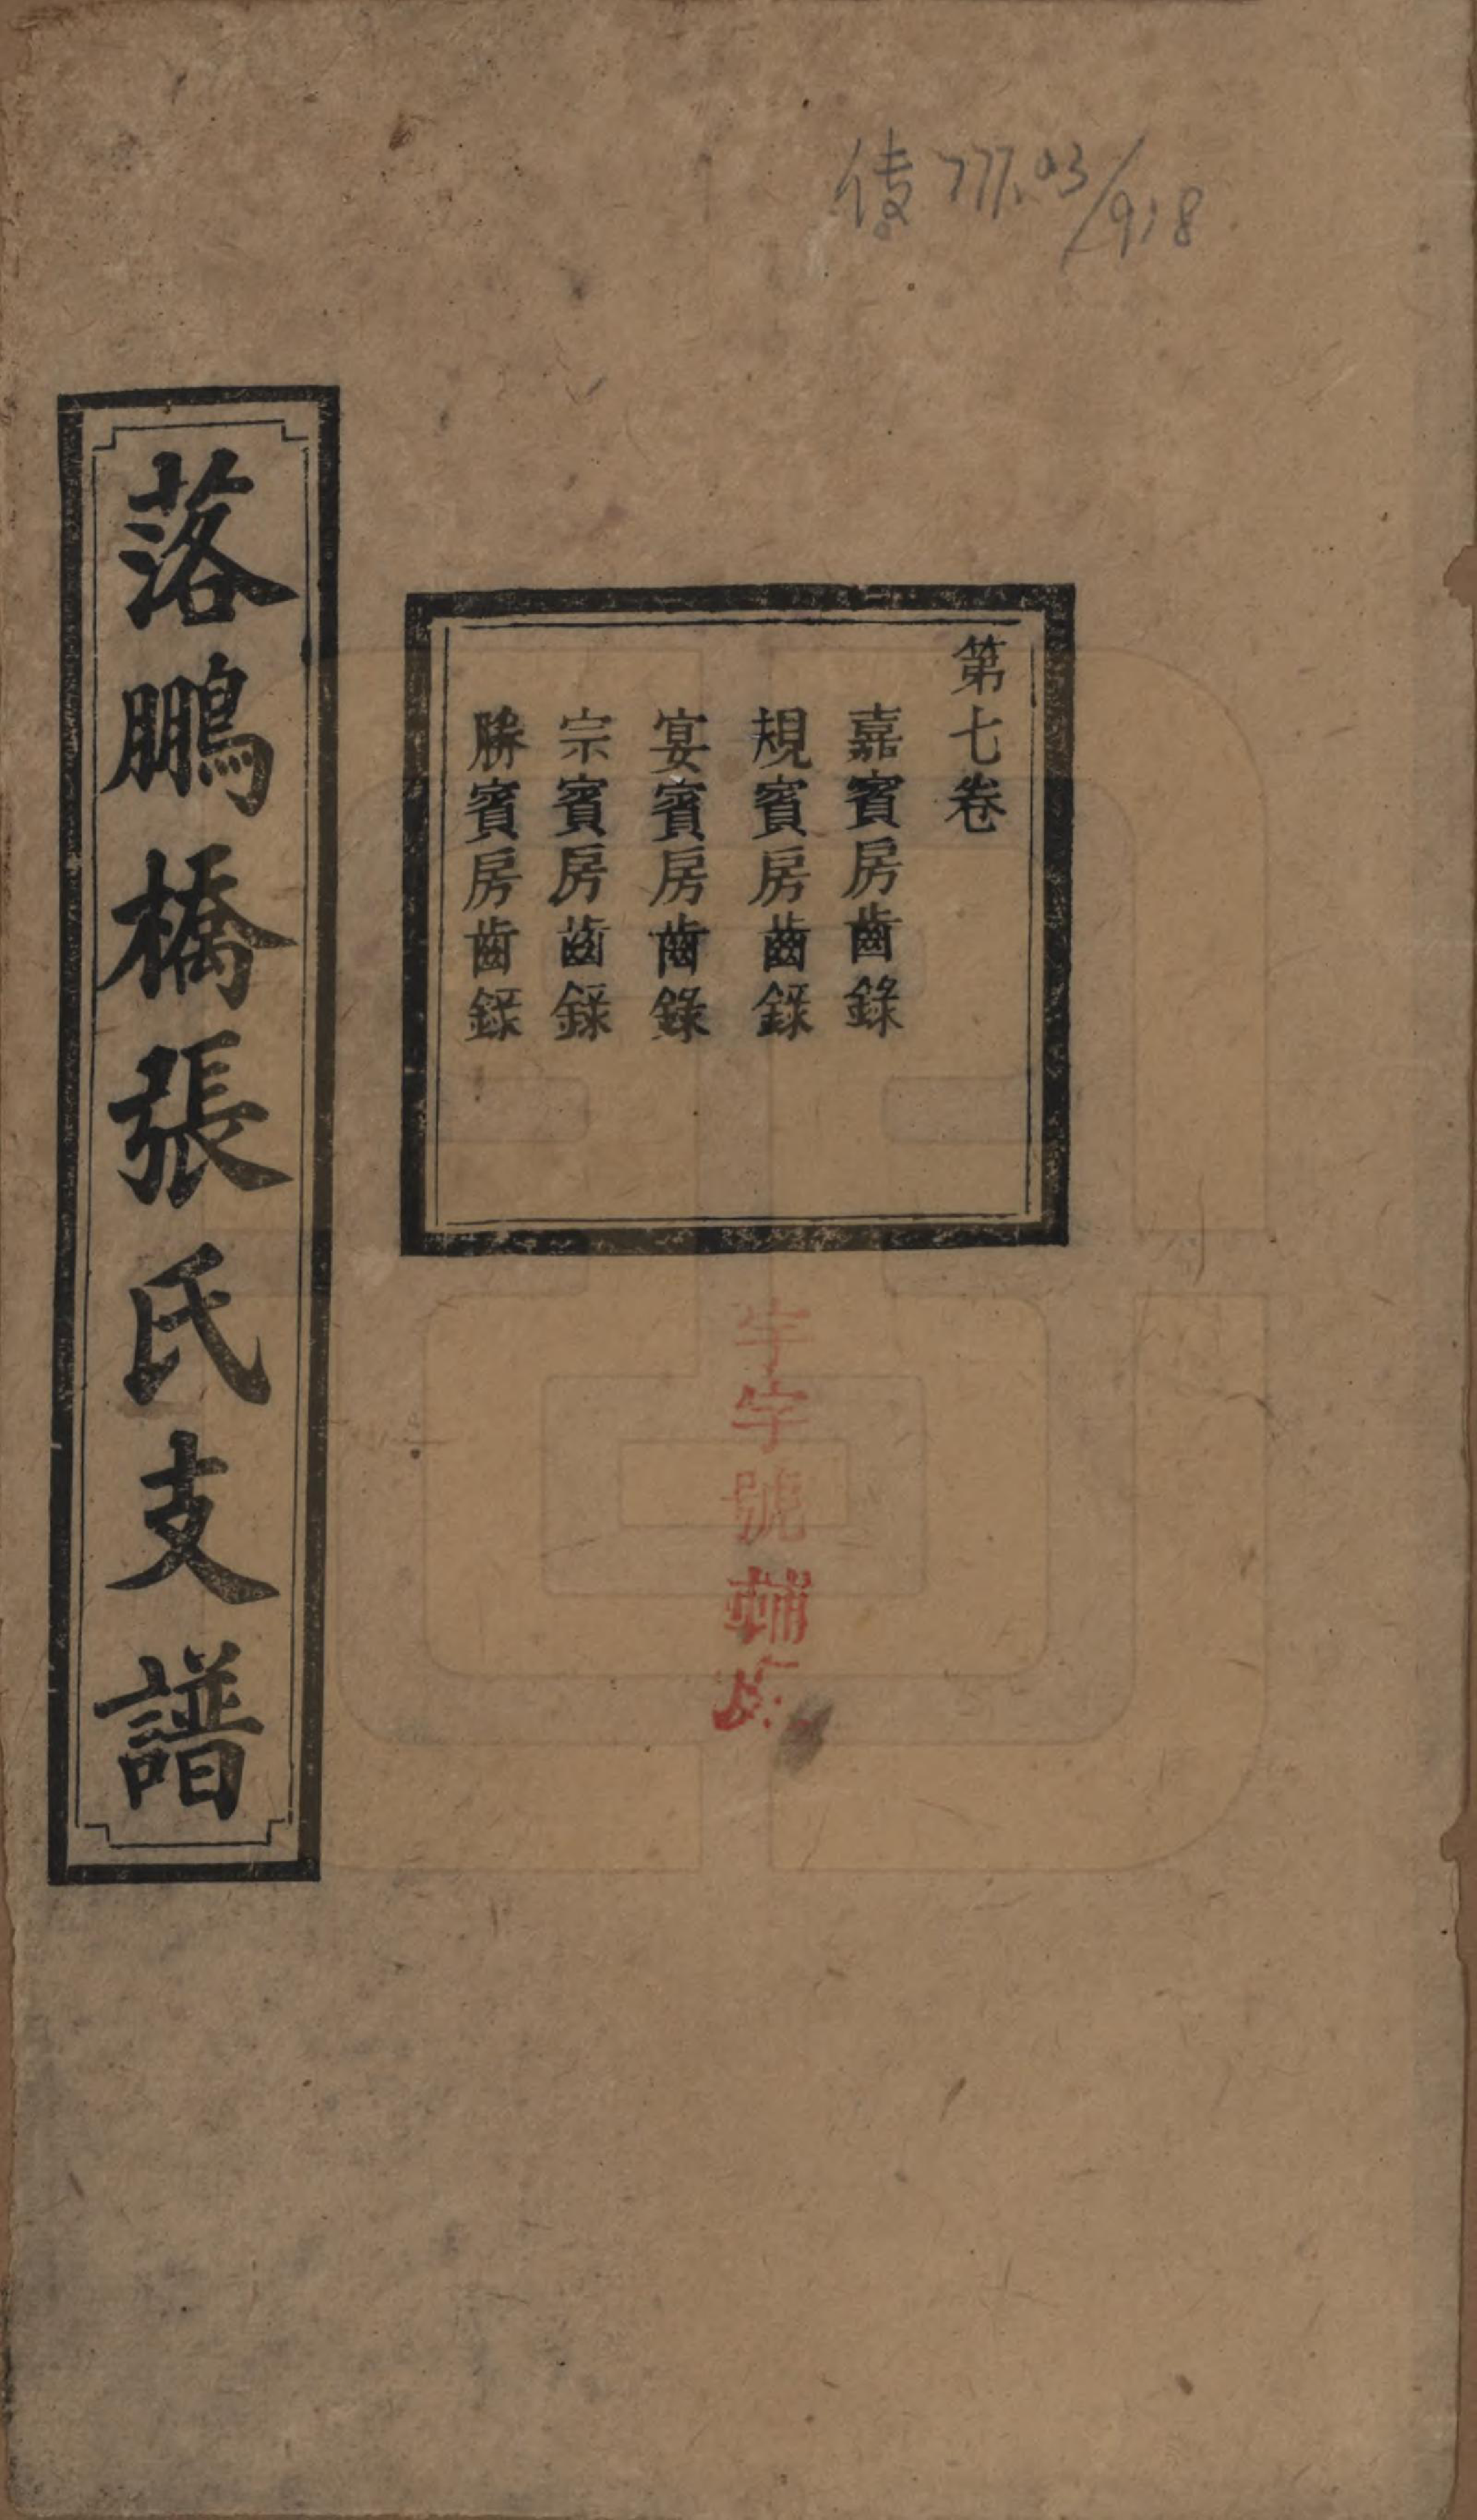 777.03/918
第七卷
嘉賓房齒錄
規賓房齒錄
宴賓房齒錄
宗賓房齒錄
勝賓房齒錄
落鵬橋張氏支譜
字號輔